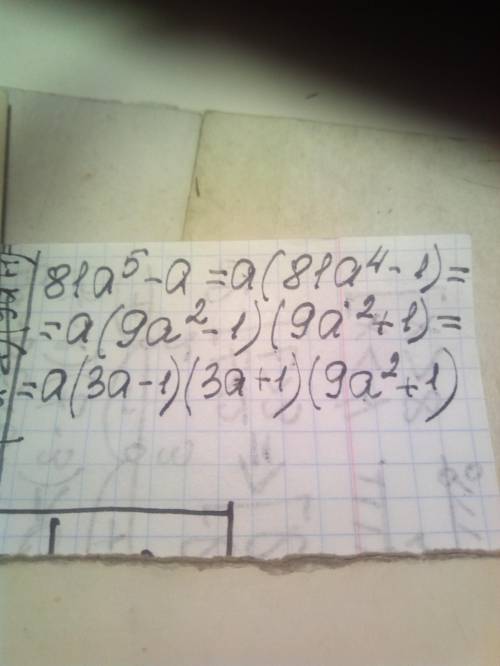 81a⁵-a=a(81a⁴-1)=
=a(9a²-1)(9a²+1)=
=a(3a-1)(3a+1)(9a²+1)